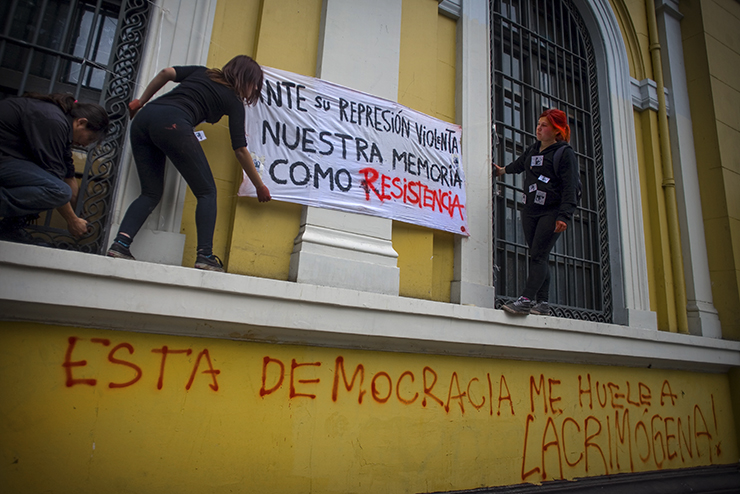 NTE su REPRESIÓN VIOLENTA
NUESTRA MEMORIA
COMO RESISTENCIA
ESTA DEMOCRACIA ME HUELE A
LACRIMÓGENA!